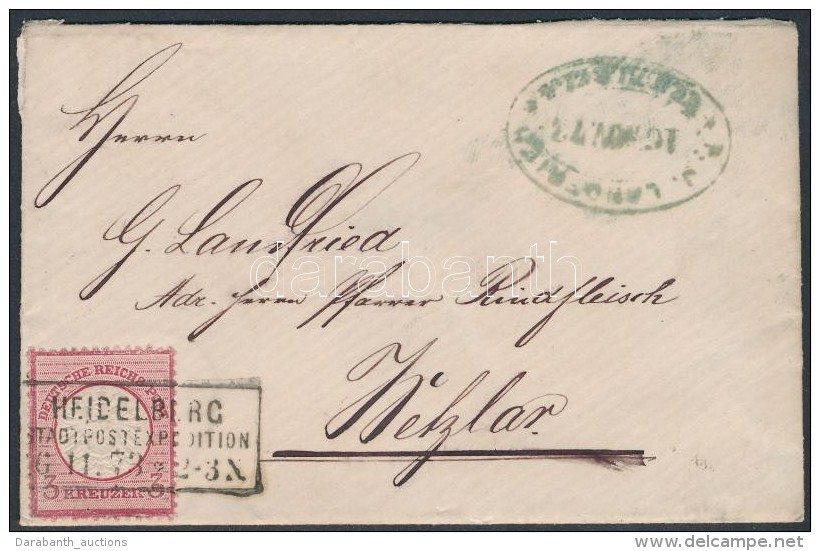 Herrn
G. Landfried
Adr. Herrn Pfarrer Rindfleisch
Wetzlar.
P. J. LANDFRIED
16 NOV 73
DEUTSCHE REICHS-P
3 KREUZER 3
HEIDELBERG
STADTPOSTEXPEDITION
16 11. 73 2-3N
darabanth
Darabanth_auctions
www.delcampe.net